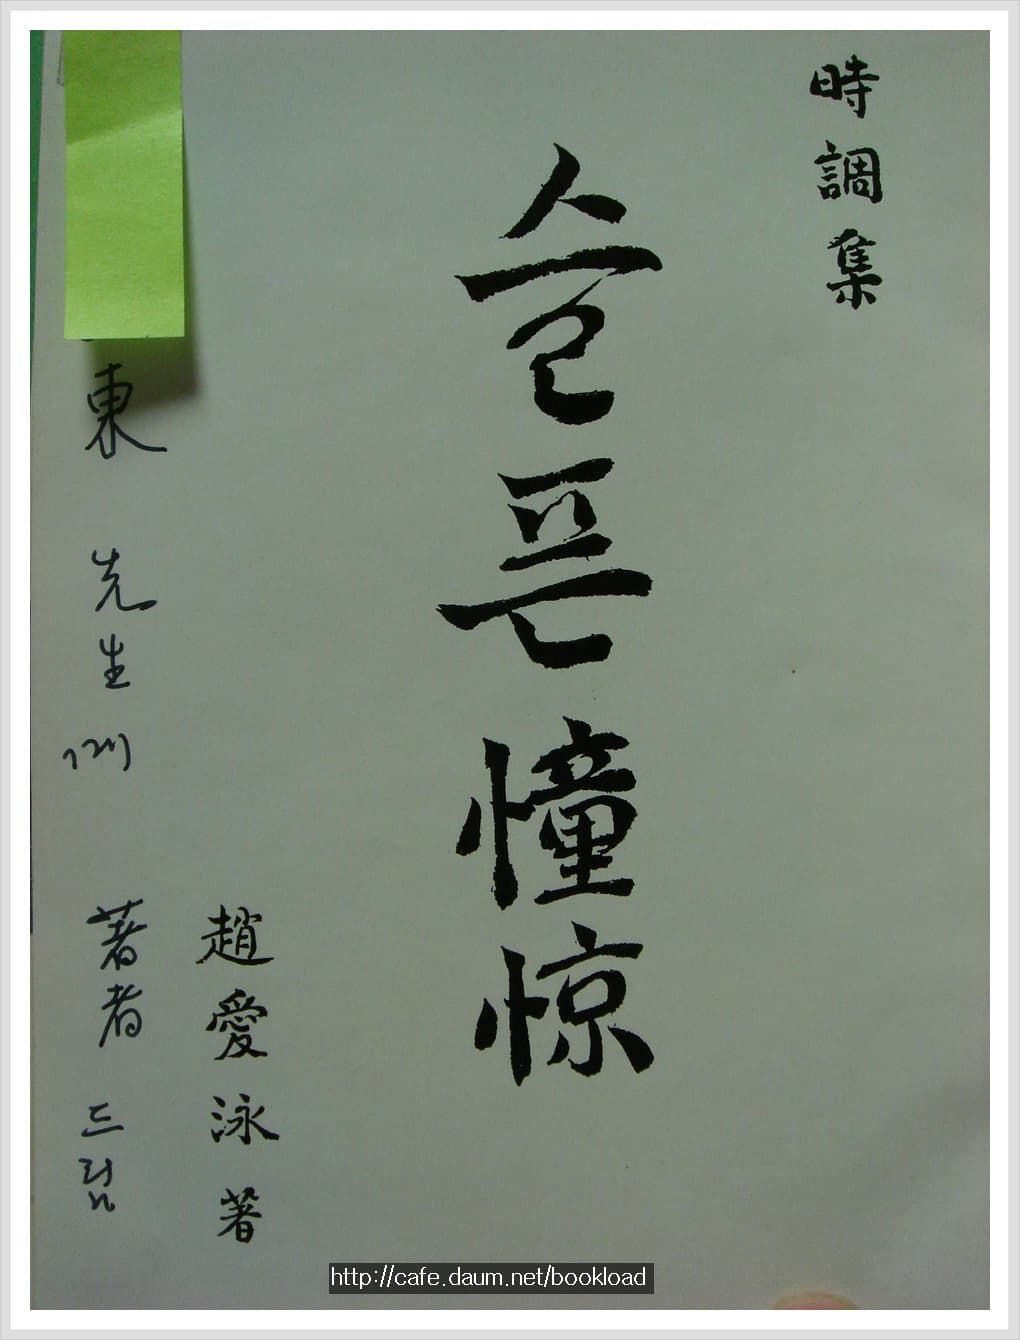 時調集
슬픈 憧憬
趙愛泳 著
東 先生
著者 드림
http://cafe.daum.net/bookload